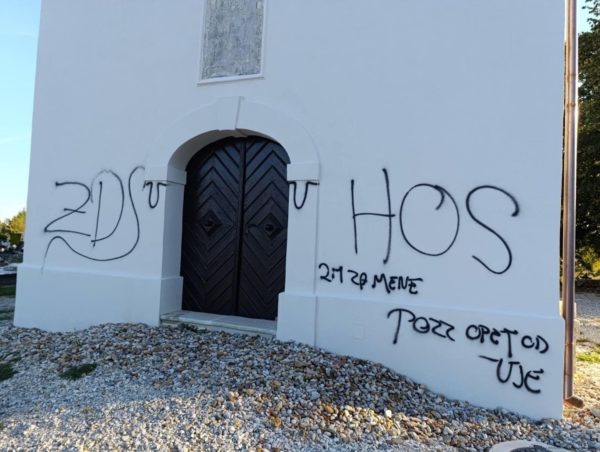 ZDS U U HOS
ZA MENE
POZZ OPET OD
UJE